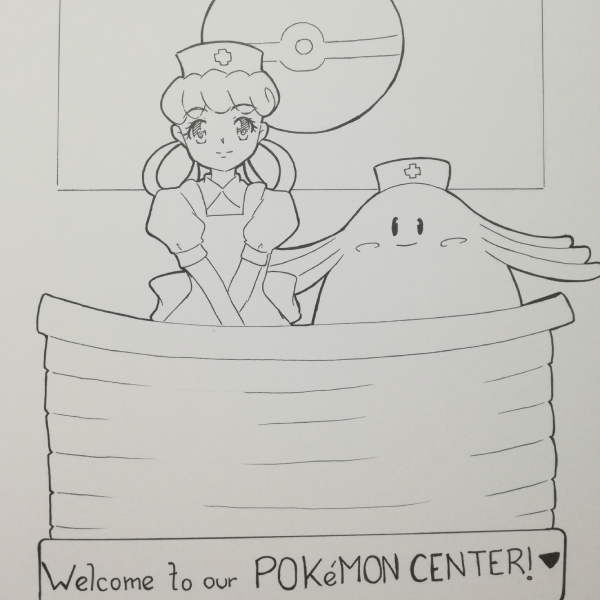 Welcome to our POKéMON CENTER!♥